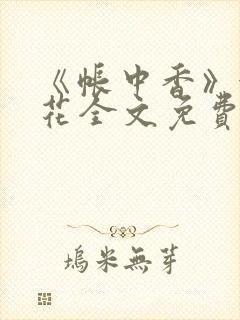 《帐中香》
花全文免費
塢米無芽